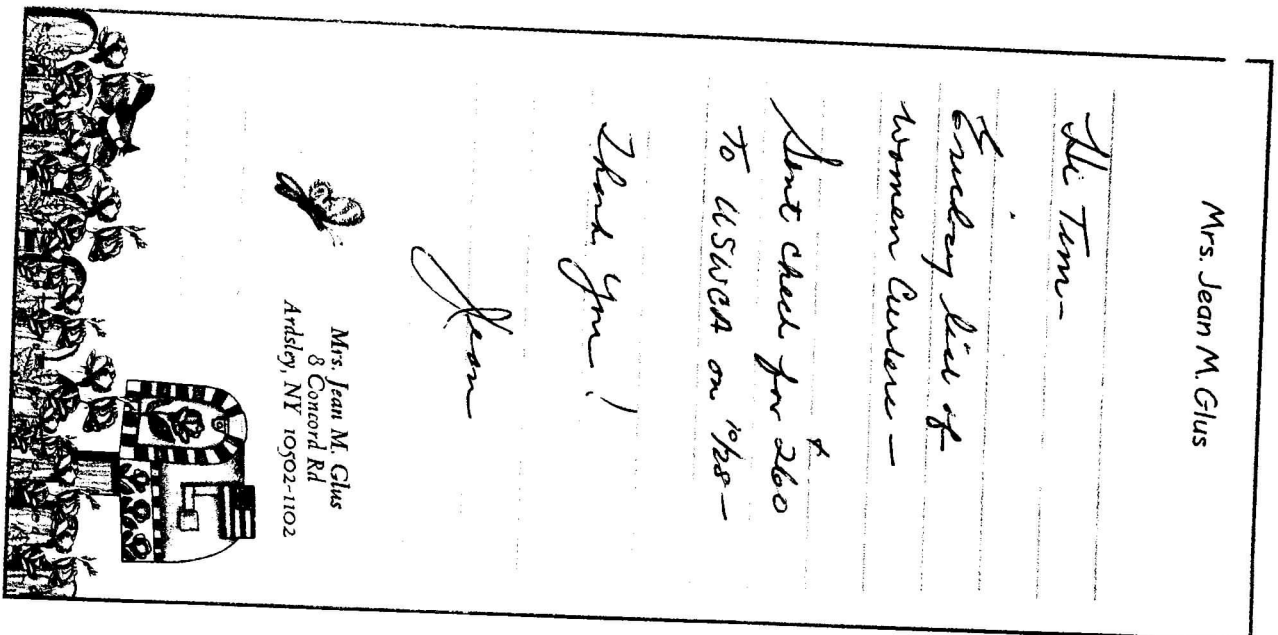 Mrs. Jean M. Glus
Hi Tim-
list of
Women Curlers -
Sent check for 260
To USWCA on 10/28 -
Thank you!
Jean
Mrs. Jean M. Glus
8 Concord Rd
Ardsley, NY 10502-1102